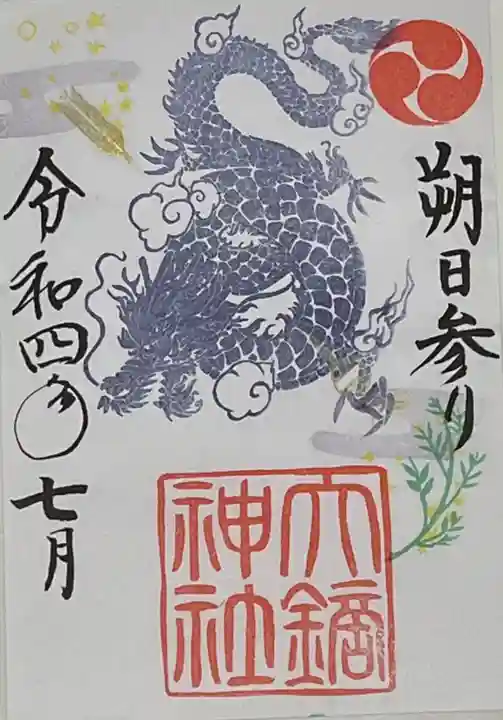 朔日参り
令和四年七月
大鏑
神社